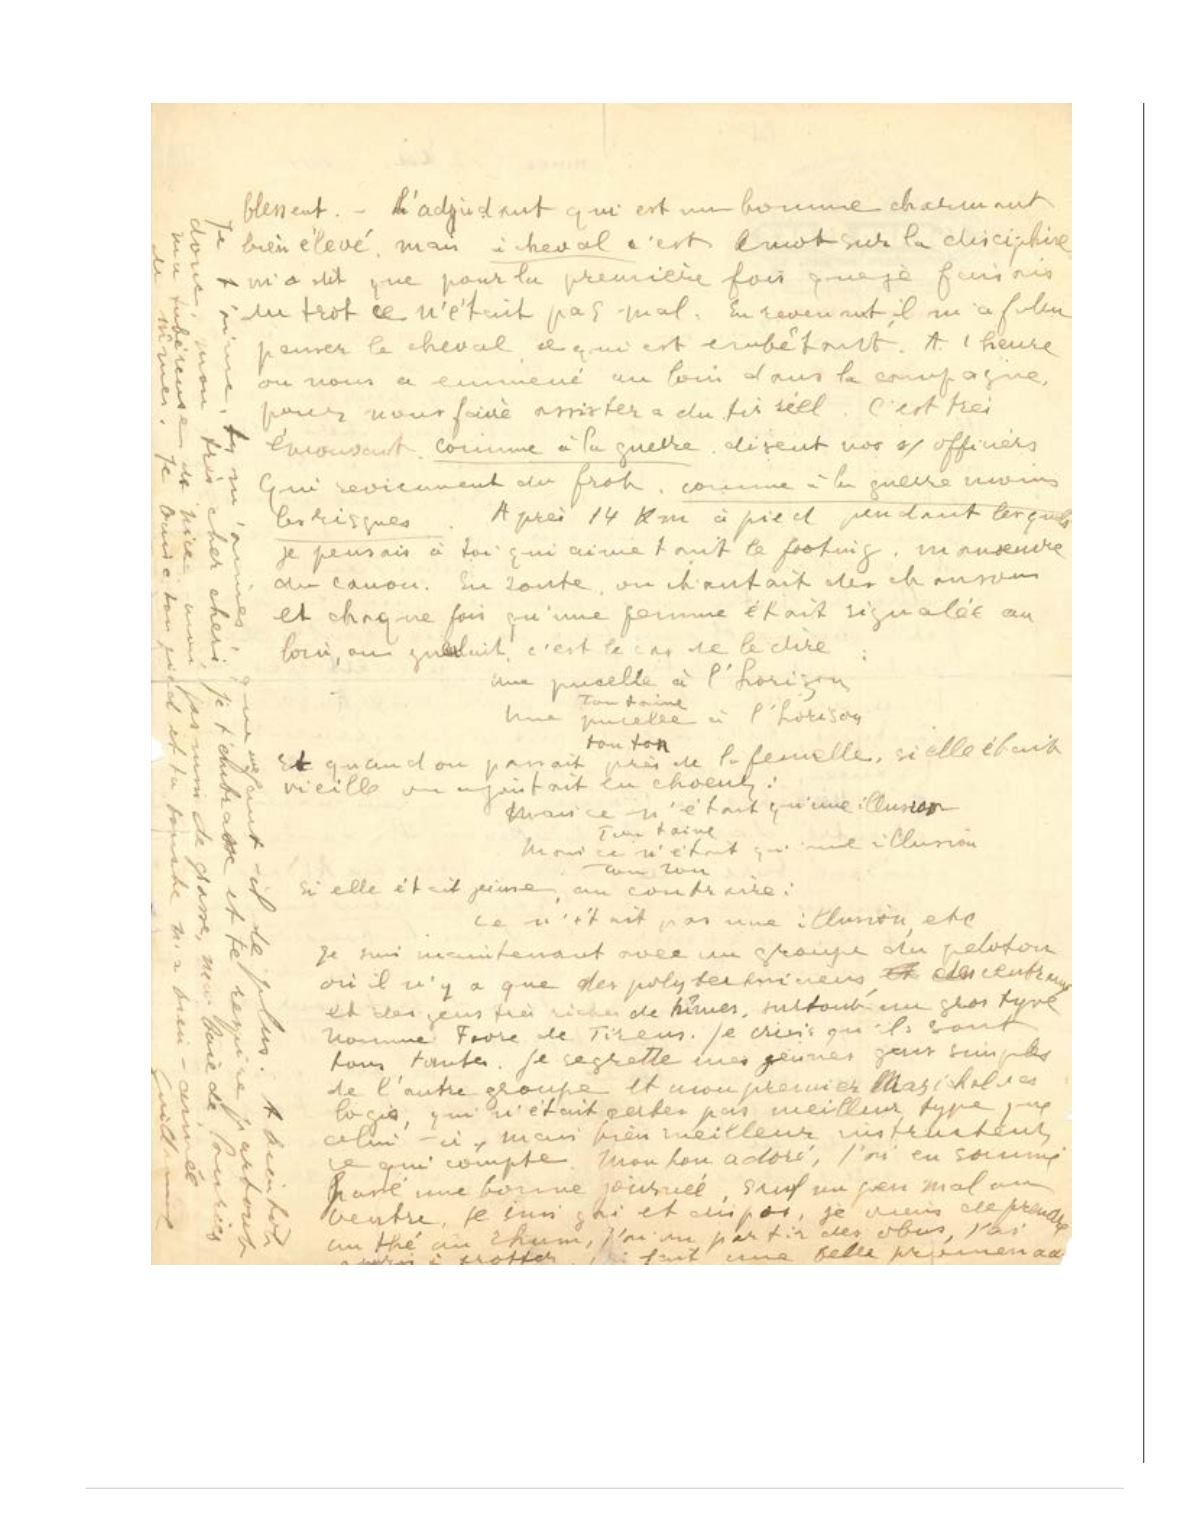 blessent. – L'adjudant qui est un homme charmant
bien élevé, mais à cheval c'est à mot sur la discipline
m'a dit que pour la première fois que je faisais
du trot ce n'était pas mal. En revenant, il m'a fallu
panser le cheval, ce qui est embêtant. A 1 heure
on nous a emmené au loin dans la campagne,
pour nous faire assister à du tir réel. C'est très
émouvant, comme à la guerre, disent nos s/ officiers
Qui reviennent du front, comme à la guerre moins
les risques. Après 14 Km à pied pendant lesquels
je pensais à toi qui aime tant le footing, manœuvre
du canon. En route, on chantait des chansons
et chaque fois qu'une femme était signalée au
loin, on gueulait, c'est le cas de le dire :
une pucelle à l'horizon
Ton taine
Une pucelle à l'horison
ton ton
Et quand on passait près de la femelle, si elle était
vieille on ajoutait en choeur :
Mais ce n'était qu'une illusion
Ton taine
Mais ce n'était qu'une illusion
ton ton
Si elle était jeune, au contraire :
Ce n'était pas une illusion, etc
Je suis maintenant avec un groupe du peloton
où il n'y a que des polytechniciens, et des centraux
et des gens très riches de Nîmes, surtout un gros type
nommé Favre de Tirens. Je crois qu'ils sont
tous tantes. Je regrette mes jeunes gens simples
de l'autre groupe et mon premier Maréchal des
logis, qui n'était certes pas meilleur type que
celui-ci, mais bien meilleur instructeur,
ce qui compte. Mon Lou adoré, j'ai en somme
passé une bonne journée, sauf un peu mal au
ventre, je suis gai et dispos, je viens de prendre
un thé au rhum, j'ai vu partir des obus, j'ai
appris à trotter, j'ai fait une belle promenade
Je t'aime, tu m'aimes, que me faut-il de plus. A bientôt
donc, mon très cher chéri, je t'embrasse et te respire partout
ma tubéreuse de Nice, mon jasmin de Grasse, ma baie de laurier
de Nîmes. Je baise ton pied et ta bouche ma bien-aimée
Guillaume